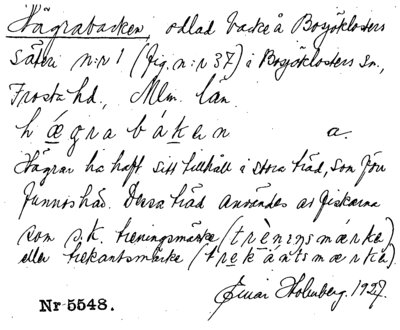 Hägrabacken, odlad backe å Bosjöklosters
säteri n:r 1 (fig. n:r 37) i Bosjöklosters sn.,
Frosta hd., Mlm. län.
hǽgrabáken a.
Hägrar ha haft sitt tillhåll i stora träd, som förr
funnos här. Dessa träd användes av fiskarna
som s.k. treningsmärke (trèningsmærke)
eller trekantsmärke (trekántsmærke).
Einar Holmberg. 1927.
Nr 5548.